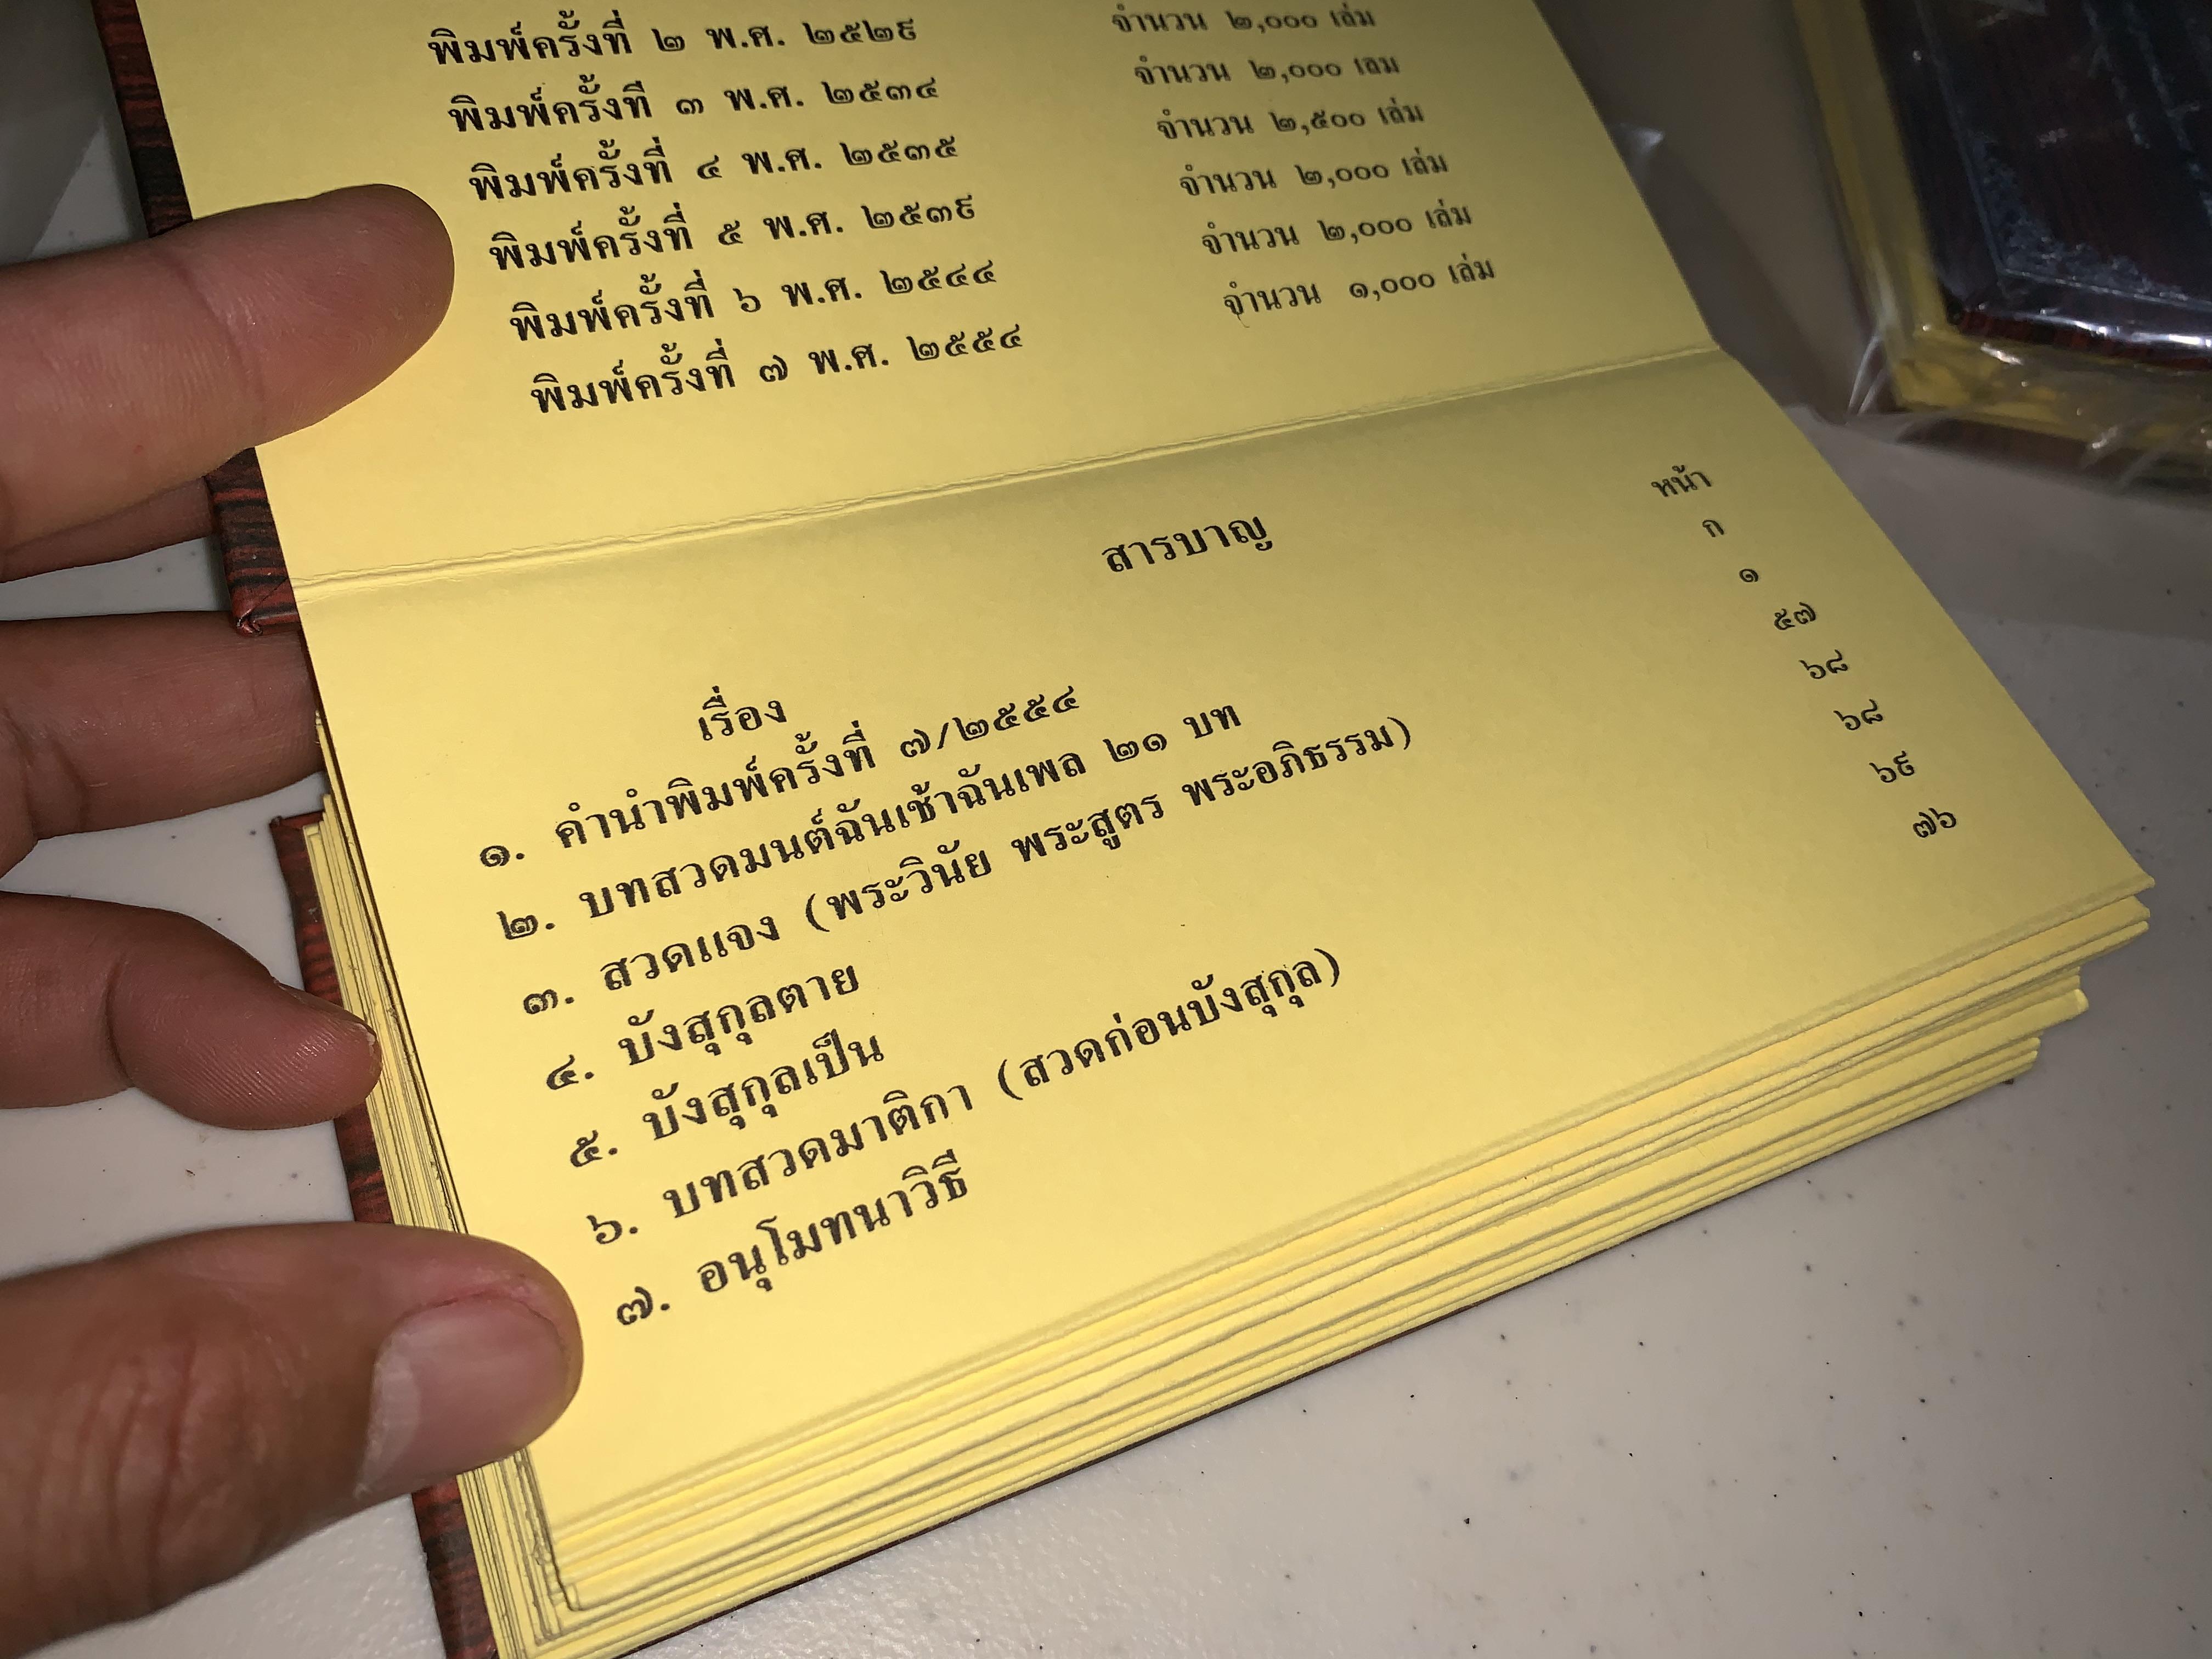 พิมพ์ครั้งที่ ๒ พ.ศ. ๒๕๒๙ จำนวน ๒,๐๐๐ เล่ม
พิมพ์ครั้งที่ ๓ พ.ศ. ๒๕๓๔ จำนวน ๒,๐๐๐ เล่ม
พิมพ์ครั้งที่ ๔ พ.ศ. ๒๕๓๕ จำนวน ๒,๕๐๐ เล่ม
พิมพ์ครั้งที่ ๕ พ.ศ. ๒๕๓๙ จำนวน ๒,๐๐๐ เล่ม
พิมพ์ครั้งที่ ๖ พ.ศ. ๒๕๔๔ จำนวน ๒,๐๐๐ เล่ม
พิมพ์ครั้งที่ ๗ พ.ศ. ๒๕๕๔ จำนวน ๑,๐๐๐ เล่ม
สารบาญ
เรื่อง หน้า
๑. คำนำพิมพ์ครั้งที่ ๗/๒๕๕๔ ก
๒. บทสวดมนต์ฉันเช้าฉันเพล ๒๑ บท ๑
๓. สวดแจง (พระวินัย พระสูตร พระอภิธรรม) ๕๗
๔. บังสุกุลตาย ๖๘
๕. บังสุกุลเป็น ๖๘
๖. บทสวดมาติกา (สวดก่อนบังสุกุล) ๖๙
๗. อนุโมทนาวิธี ๗๖